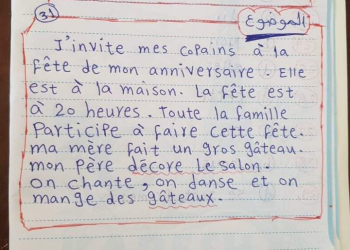 31
الموضوع
J'invite mes copains à la
fête de mon anniversaire. Elle
est à la maison. La fête est
à 20 heures. Toute la famille
Participe à faire cette fête.
ma mère fait un gros gâteau.
mon père décore Le salon.
on chante, on danse et on
mange des gâteaux.